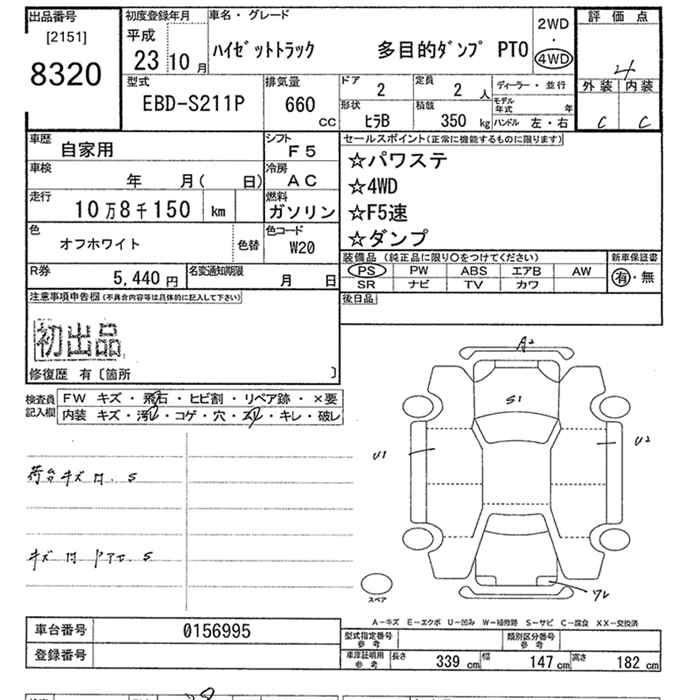 出品番号
[2151]
8320
初度登録年月
平成
23 10 月
車名・グレード
ハイゼットトラック 多目的ダンプ PTO
2WD
・
4WD
評価点
4
外装 内装
C C
型式
EBD-S211P
排気量
660 cc
ドア
2
定員
2 人
ディーラー・並行
形状
ヒラB
積載
350 kg
モデル年式 年
ハンドル 左・右
車歴
自家用
シフト
F5
車検
年 月( 日)
冷房
AC
走行
10万8千150 km
燃料
ガソリン
色
オフホワイト
色替
色コード
W20
R券
5,440 円
名変通知期限
月 日
セールスポイント(正常に機能するものに限ります)
☆パワステ
☆4WD
☆F5速
☆ダンプ
装備品 (純正品に限り〇をつけてください)
PS PW ABS エアB AW
SR ナビ TV カワ
新車保証書
有・無
後日品
注意事項申告欄(不具合内容等は具体的に記入して下さい)
初出品
修復歴 有〔箇所 〕
検査員記入欄
FW キズ・飛石・ヒビ割・リペア跡・×要
内装 キズ・汚レ・コゲ・穴・スレ・キレ・破レ
荷台キズ凹.S
キズ凹ドアエ.S
A2
S1
U1
U2
ワレ
スペア
A－キズ E－エクボ U－凹み W－補修跡 S－サビ C－腐食 XX－交換済
車台番号
0156995
登録番号
型式指定番号参考
類別区分番号参考
車庫証明用参考
長さ 339 cm 幅 147 cm 高さ 182 cm